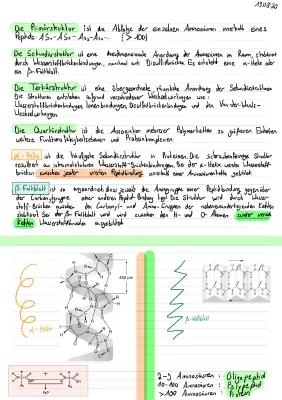 13.09.20
Die Primärstruktur ist die Abfolge der einzelnen Aminosäuren innerhalb eines
Peptids AS₁ - AS₂ - AS₃ - AS₄ ... (>100)
Die Sekundärstruktur ist eine dreidimensionale Anordnung der Aminosäuren im Raum, stabilisiert
durch Wasserstoffbrückenbindungen, und Disulfidbrücken. Es entsteht eine α-Helix oder
ein β-Faltblatt.
Die Tertiärstruktur ist eine übergeordnete räumliche Anordnung der Sekundärstrukturen.
Die Strukturen entstehen aufgrund verschiedener Wechselwirkungen wie:
Wasserstoffbrückenbindungen, Ionenbindungen, Disulfidbrückenbindungen und den Van-der-Waals-
Wechselwirkungen.
Die Quartärstruktur ist die Assoziation mehrerer Polymerketten zu größeren Einheiten
weitere Funktionsfähigkeitsebenen und Proteinkomplexen.
α-Helix ist die häufigste Sekundärstruktur in Proteinen. Die schraubenförmige Struktur
resultiert aus intramolekularen Wasserstoff-Brückenbindungen. Bei der α-Helix werden Wasserstoff-
brücken zwischen jeder vierten Peptidbindung innerhalb einer Aminosäurekette gebildet.
β-Faltblatt ist so angeordnet, dass jeweils die Aminogruppe einer Peptidbindung gegenüber
der Carbonylgruppe einer anderen Peptid-Bindung liegt. Die Struktur wird durch Wasser-
stoff-Brücken zwischen den Carbonyl- und Amino-Gruppen der nebeneinanderliegenden Ketten
stabilisiert. Bei der β-Faltblatt wird zwischen den H- und O-Atomen zweier versch.
Ketten Wasserstoffbrücken ausgebildet.
α-Helix
β-Faltblatt
2-9 Aminosäuren : Oligopeptid
10-100 Aminosäuren : Polypeptid
>100 Aminosäuren : Protein
H₂O